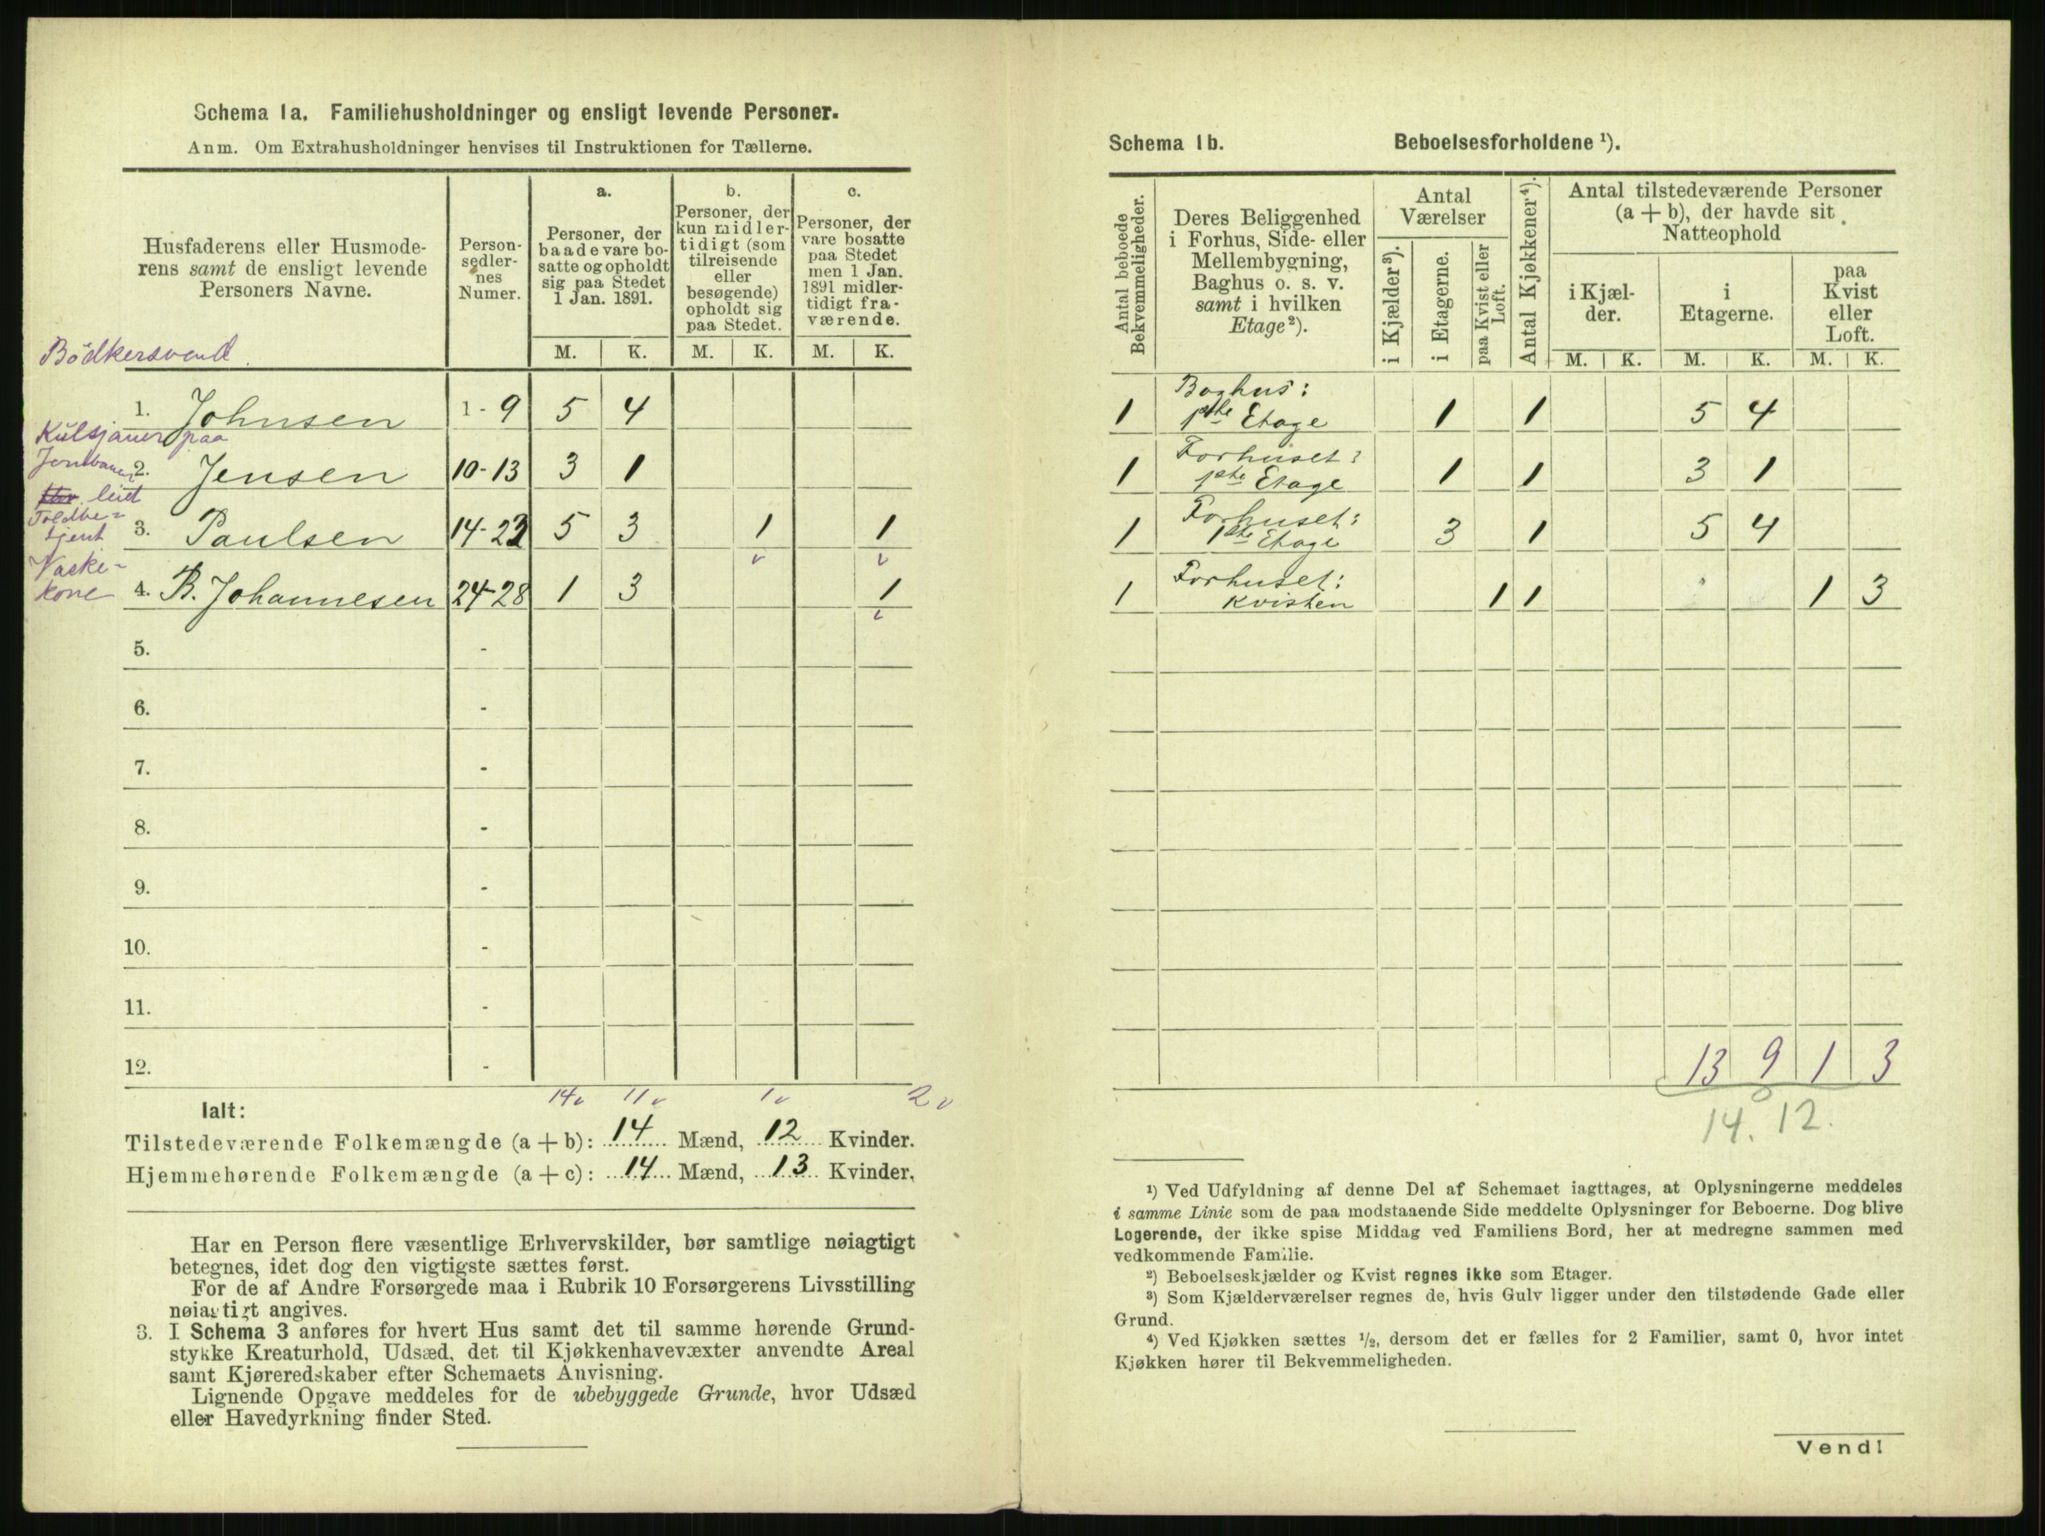 Schema 1a. Familiehusholdninger og ensligt levende Personer.
Anm. Om Extrahusholdninger henvises til Instruktionen for Tællerne.
Husfaderens eller Husmoderens samt de ensligt levende Personers Navne.
Personsedlernes Numer.
a.
Personer, der baade vare bosatte og opholdt sig paa Stedet 1 Jan. 1891.
b.
Personer, der kun midlertidigt (som tilreisende eller besøgende) opholdt sig paa Stedet.
c.
Personer, der vare bosatte paa Stedet men 1 Jan. 1891 midlertidigt fraværende.
M. K. M. K. M. K.
Bödkersvend
1. Johnsen 1 - 9 5 4
Kulsjauer paa
2. Jensen 10-13 3 1
leid
Toldbetjent
3. Paulsen 14-23 5 3 1 1
Vaskekone
4. B. Johannesen 24-28 1 3 1
5. -
6. -
7. -
8. -
9. -
10. -
11. -
12. -
14 v 11 v 1 v 2 v
Ialt:
Tilstedeværende Folkemængde (a + b): 14 Mænd, 12 Kvinder.
Hjemmehørende Folkemængde (a + c): 14 Mænd, 13 Kvinder.
Har en Person flere væsentlige Erhvervskilder, bør samtlige nøiagtigt
betegnes, idet dog den vigtigste sættes først.
For de af Andre Forsørgede maa i Rubrik 10 Forsørgerens Livsstilling
nøiagtigt angives.
3. I Schema 3 anføres for hvert Hus samt det til samme hørende Grund-
stykke Kreaturhold, Udsæd, det til Kjøkkenhavevæxter anvendte Areal
samt Kjøreredskaber efter Schemaets Anvisning.
Lignende Opgave meddeles for de ubebyggede Grunde, hvor Udsæd
eller Havedyrkning finder Sted.
Schema 1b. Beboelsesforholdene ¹).
Antal beboede Bekvemmeligheder.
Deres Beliggenhed i Forhus, Side- eller Mellembygning, Baghus o. s. v. samt i hvilken Etage²).
Antal Værelser
i Kjælder³).
i Etagerne.
paa Kvist eller Loft.
Antal Kjøkkener⁴).
Antal tilstedeværende Personer (a + b), der havde sit Natteophold
i Kjælder.
i Etagerne.
paa Kvist eller Loft.
M. K. M. K. M. K.
1 Baghus: 1ste Etage 1 1 5 4
1 Forhuset: 1ste Etage 1 1 3 1
1 Forhuset: 1ste Etage 3 1 5 4
1 Forhuset: Kvisten 1 1 1 3
13 9 1 3
14. 12.
¹) Ved Udfyldning af denne Del af Schemaet iagttages, at Oplysningerne meddeles
i samme Linie som de paa modstaaende Side meddelte Oplysninger for Beboerne. Dog blive
Logerende, der ikke spise Middag ved Familiens Bord, her at medregne sammen med
vedkommende Familie.
²) Beboelseskjælder og Kvist regnes ikke som Etager.
³) Som Kjælderværelser regnes de, hvis Gulv ligger under den tilstødende Gade eller
Grund.
⁴) Ved Kjøkken sættes ½, dersom det er fælles for 2 Familier, samt 0, hvor intet
Kjøkken hører til Bekvemmeligheden.
Vend!